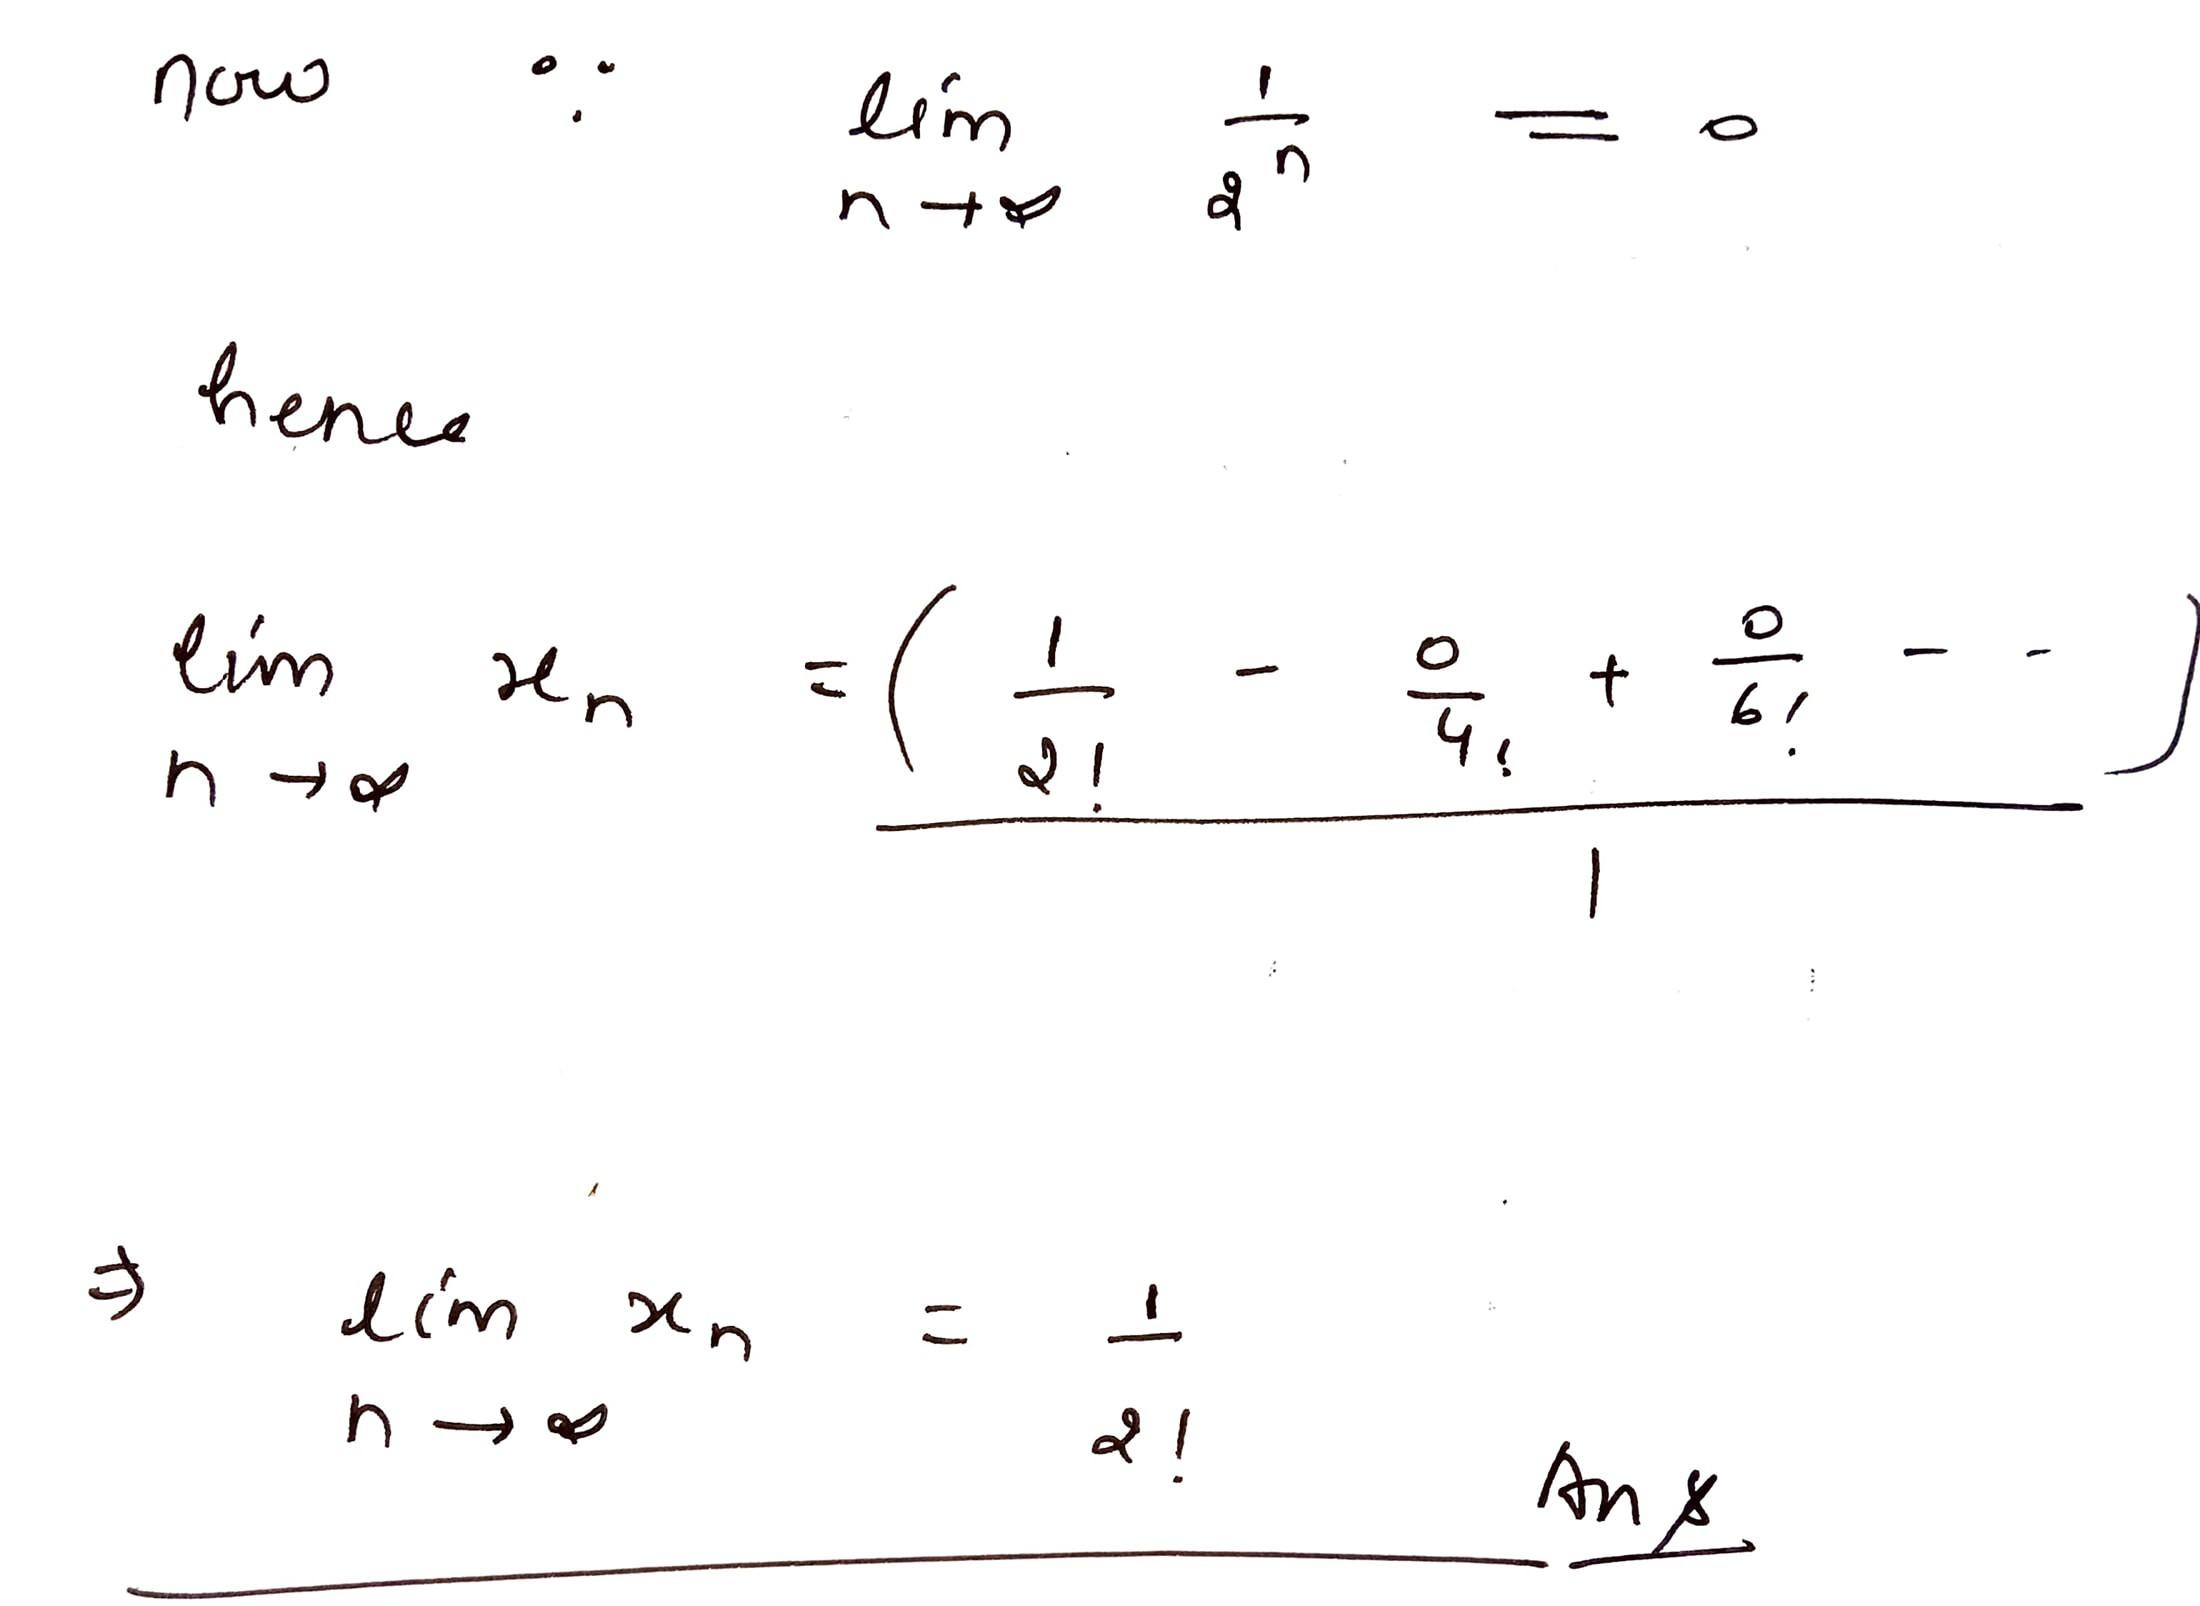 now ∵ lim n→∞ 1/2^n = 0
hence
lim n→∞ x_n = (1/2! - 0/4! + 0/6! - -) / 1
⇒ lim n→∞ x_n = 1/2!
Ans